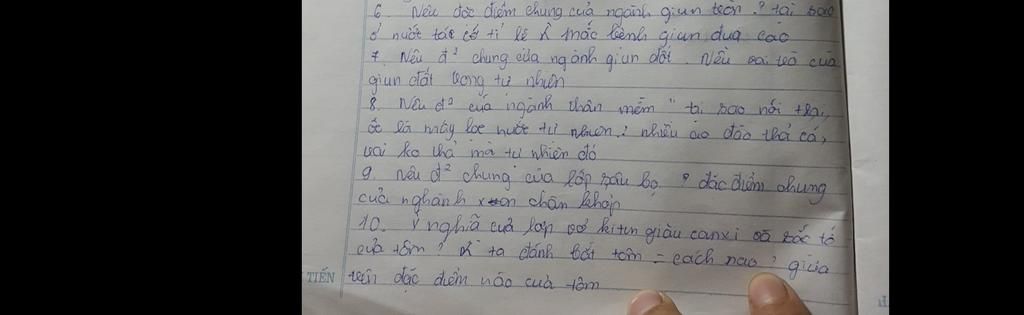 6. Nêu đặc điểm chung của ngành giun tròn ? tại sao
ở nước ta có tỉ lệ mắc bệnh giun đũa cao
7. Nêu đ² chung của ngành giun đốt. Nêu vai trò của
giun đất trong tự nhiên
8. Nêu đ² của ngành thân mềm " tại sao nói trai,
ốc là máy lọc nước tự nhiên? nhiều ao đào thả cá,
trai ko thả mà tự nhiên có
9. Nêu đ² chung của lớp sâu bọ ? đặc điểm chung
của nghành chân khớp
10. Ý nghĩa của lớp vỏ kitin giàu canxi và sắc tố
của tôm ? ta đánh bắt tôm = cách nào ? giữa
TIẾN trên đặc điểm nào của tôm